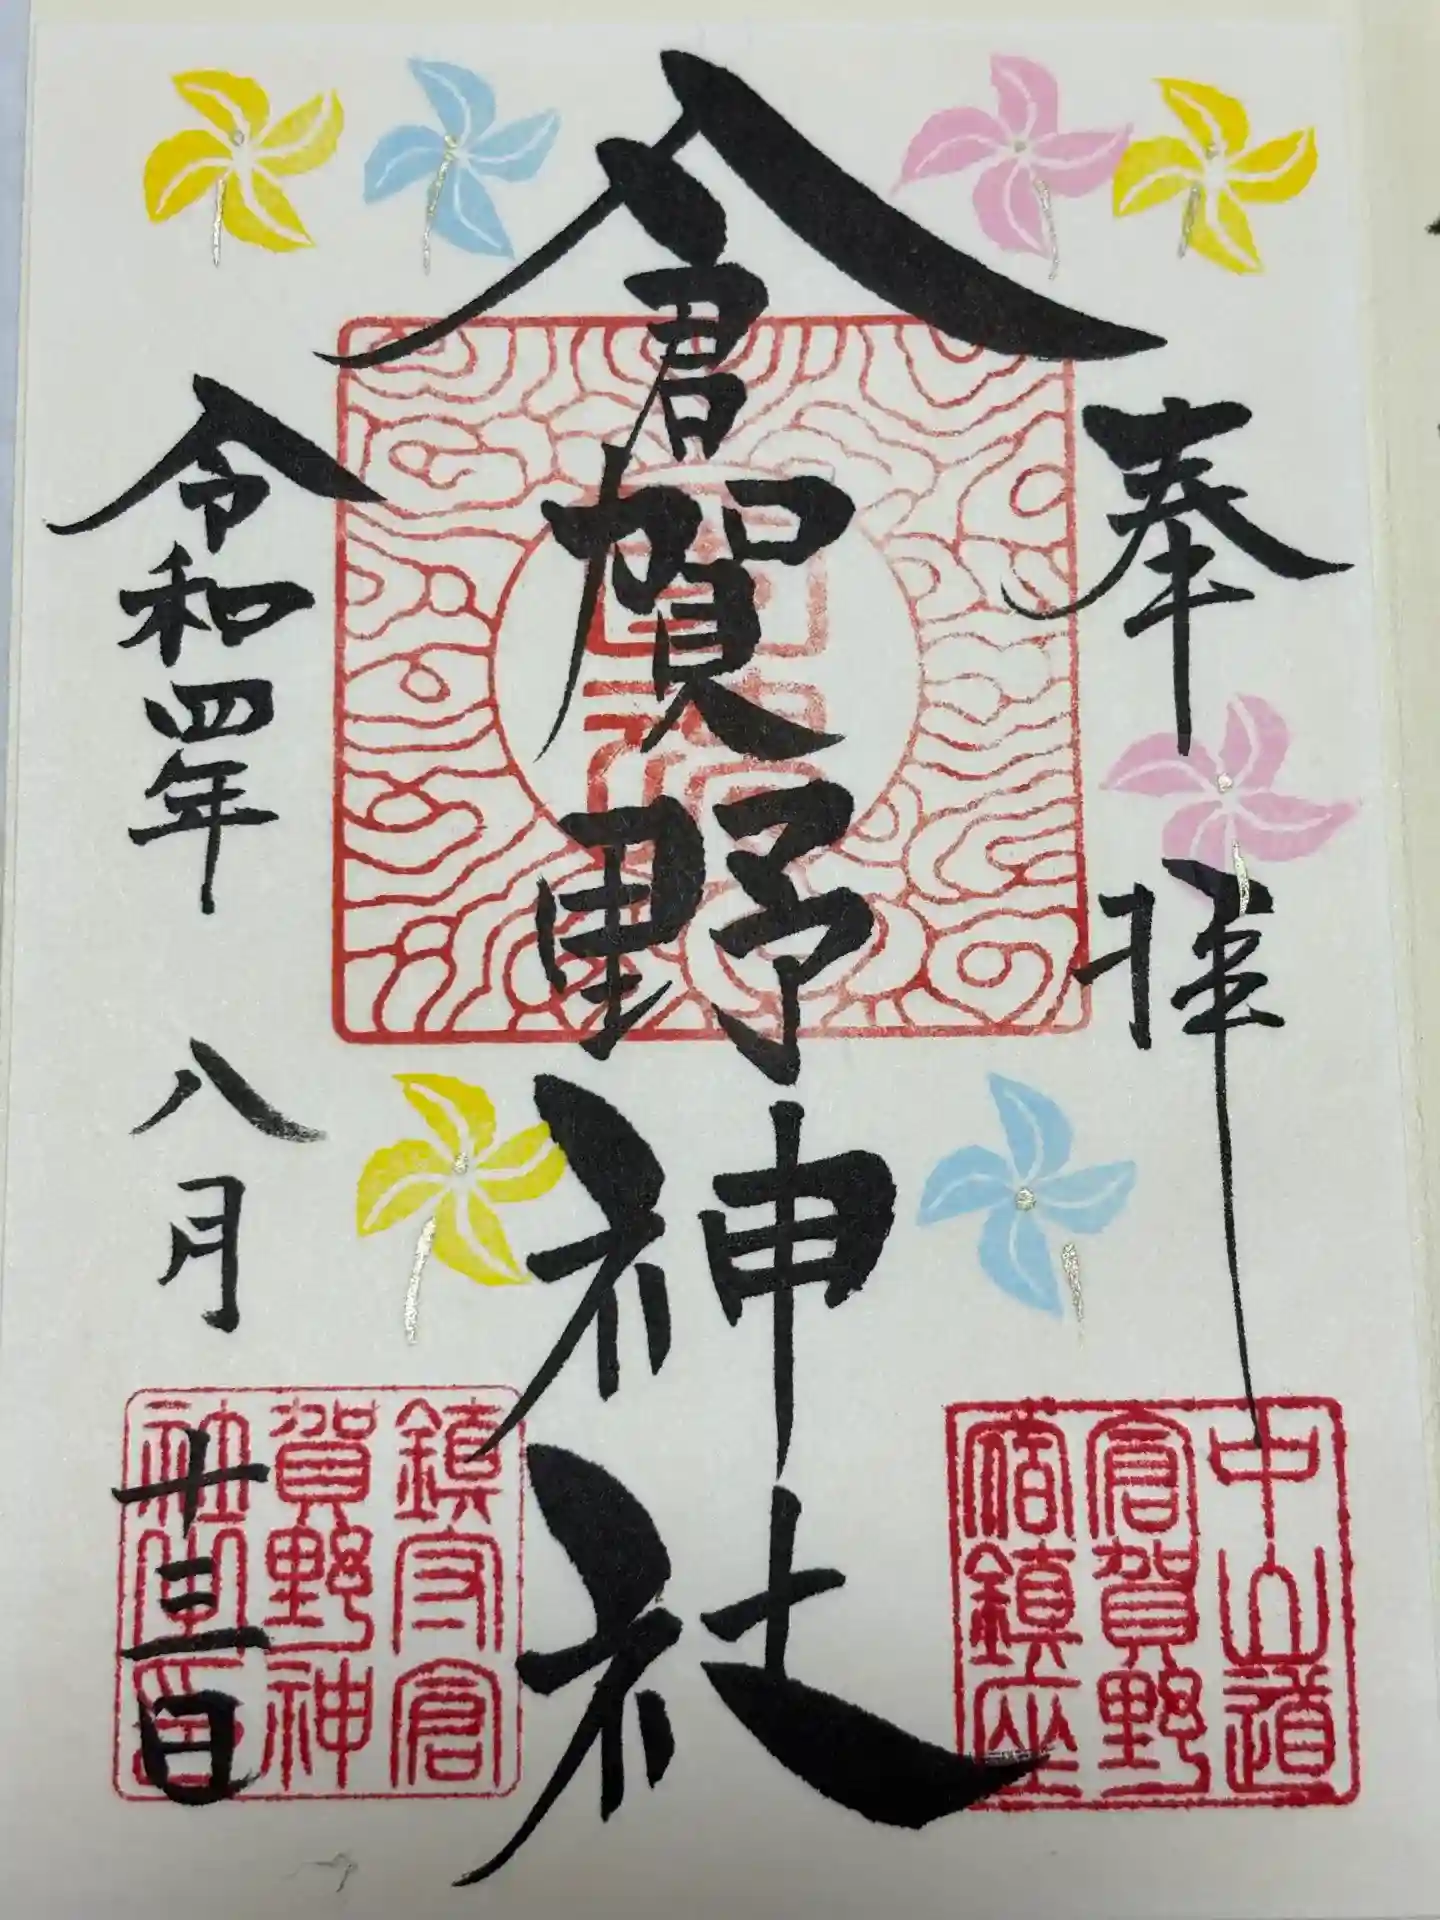 奉拝
中山道
倉賀野
宿鎮座
倉賀野神社
令和四年
八月
十三日
鎮守倉
賀野神
社